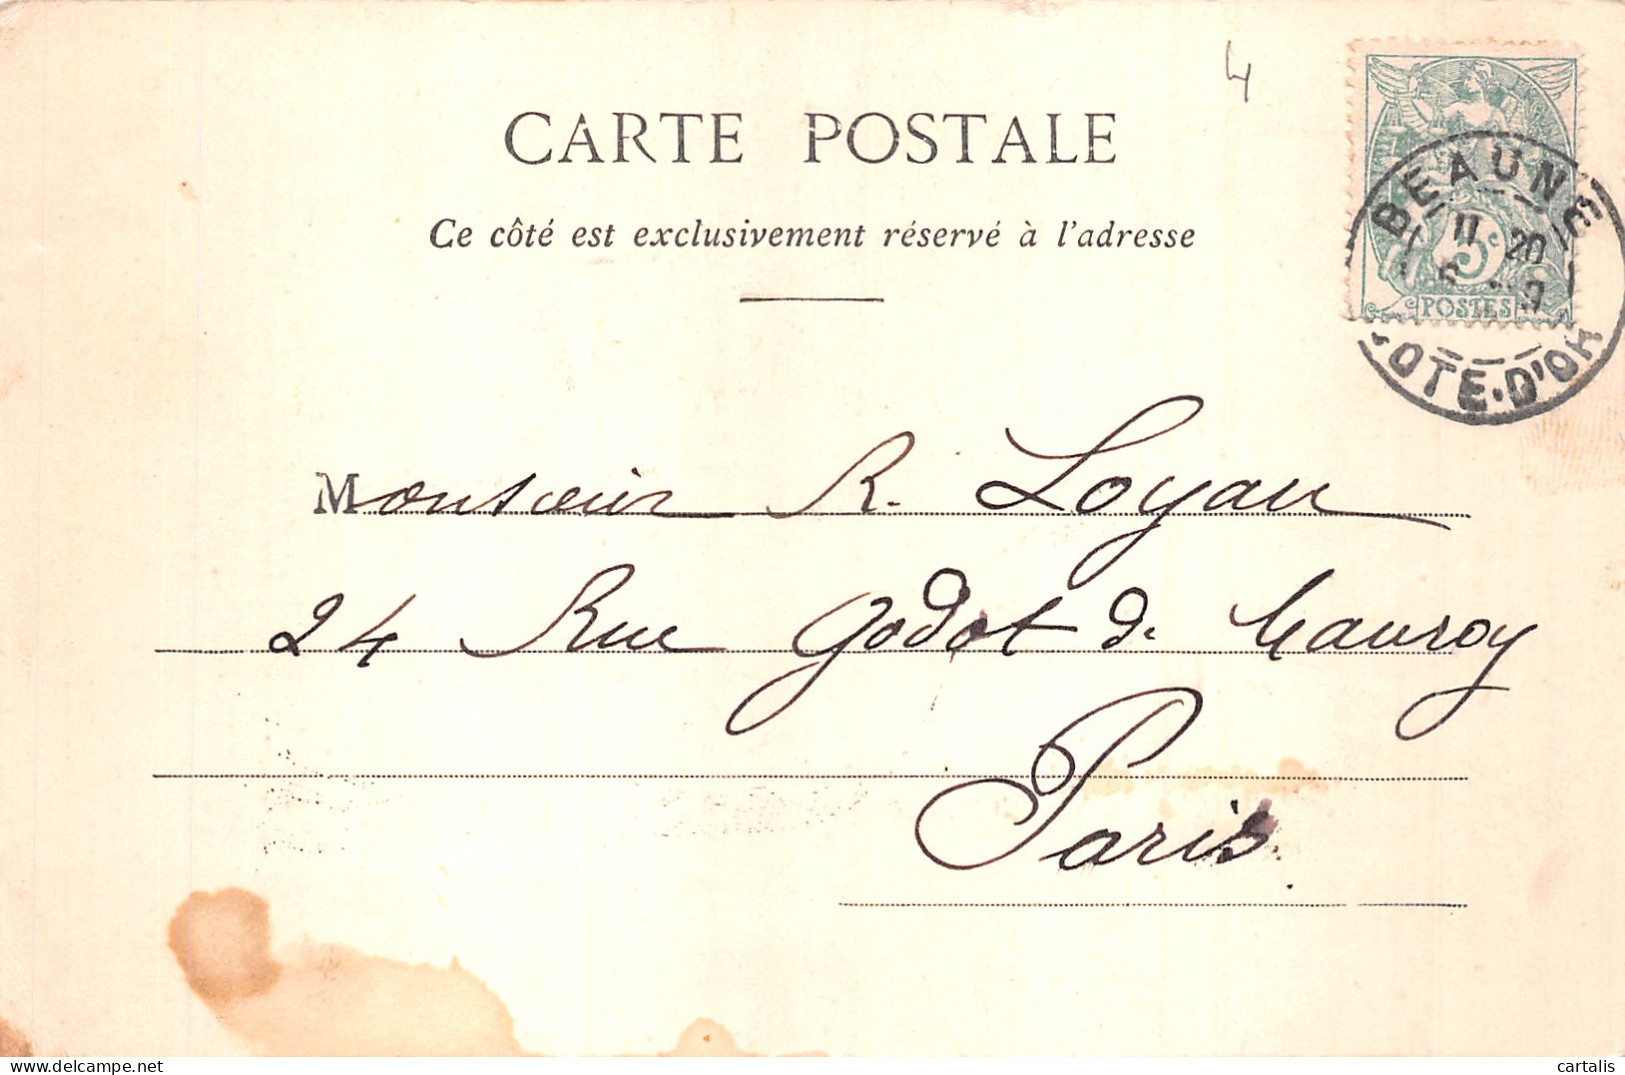 4
CARTE POSTALE
Ce côté est exclusivement réservé à l'adresse
BEAUNE
11 20
5c
POSTES
COTE-D'OR
Monsieur R. Loyau
24 Rue Godot de Mauroy
Paris
cartalis